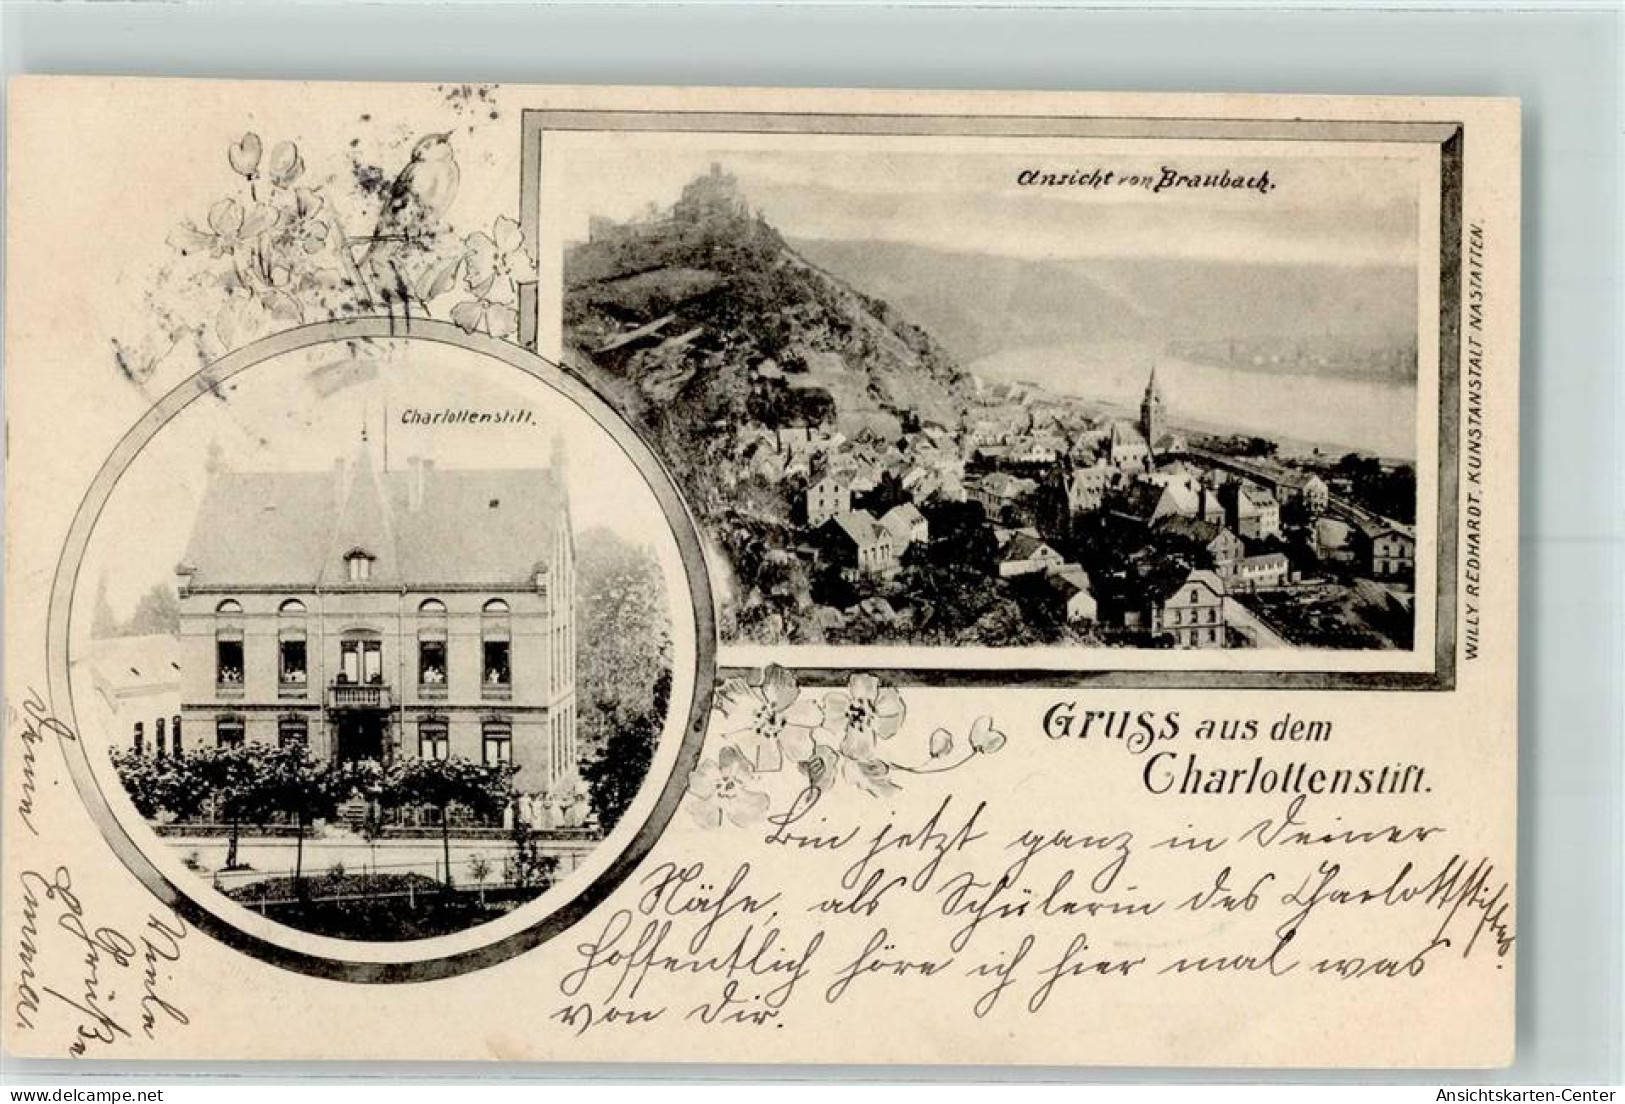 Ansicht von Braubach.
Charlottenstift.
WILLY REDHARDT. KUNSTANSTALT NASTÄTTEN.
Gruss aus dem
Charlottenstift.
Bin jetzt ganz in Deiner
Nähe, als Schülerin des Charlottstiftes.
Hoffentlich höre ich hier mal was
von Dir.
Viele
Grüße
Deine Emma
Ansichtskarten-Center